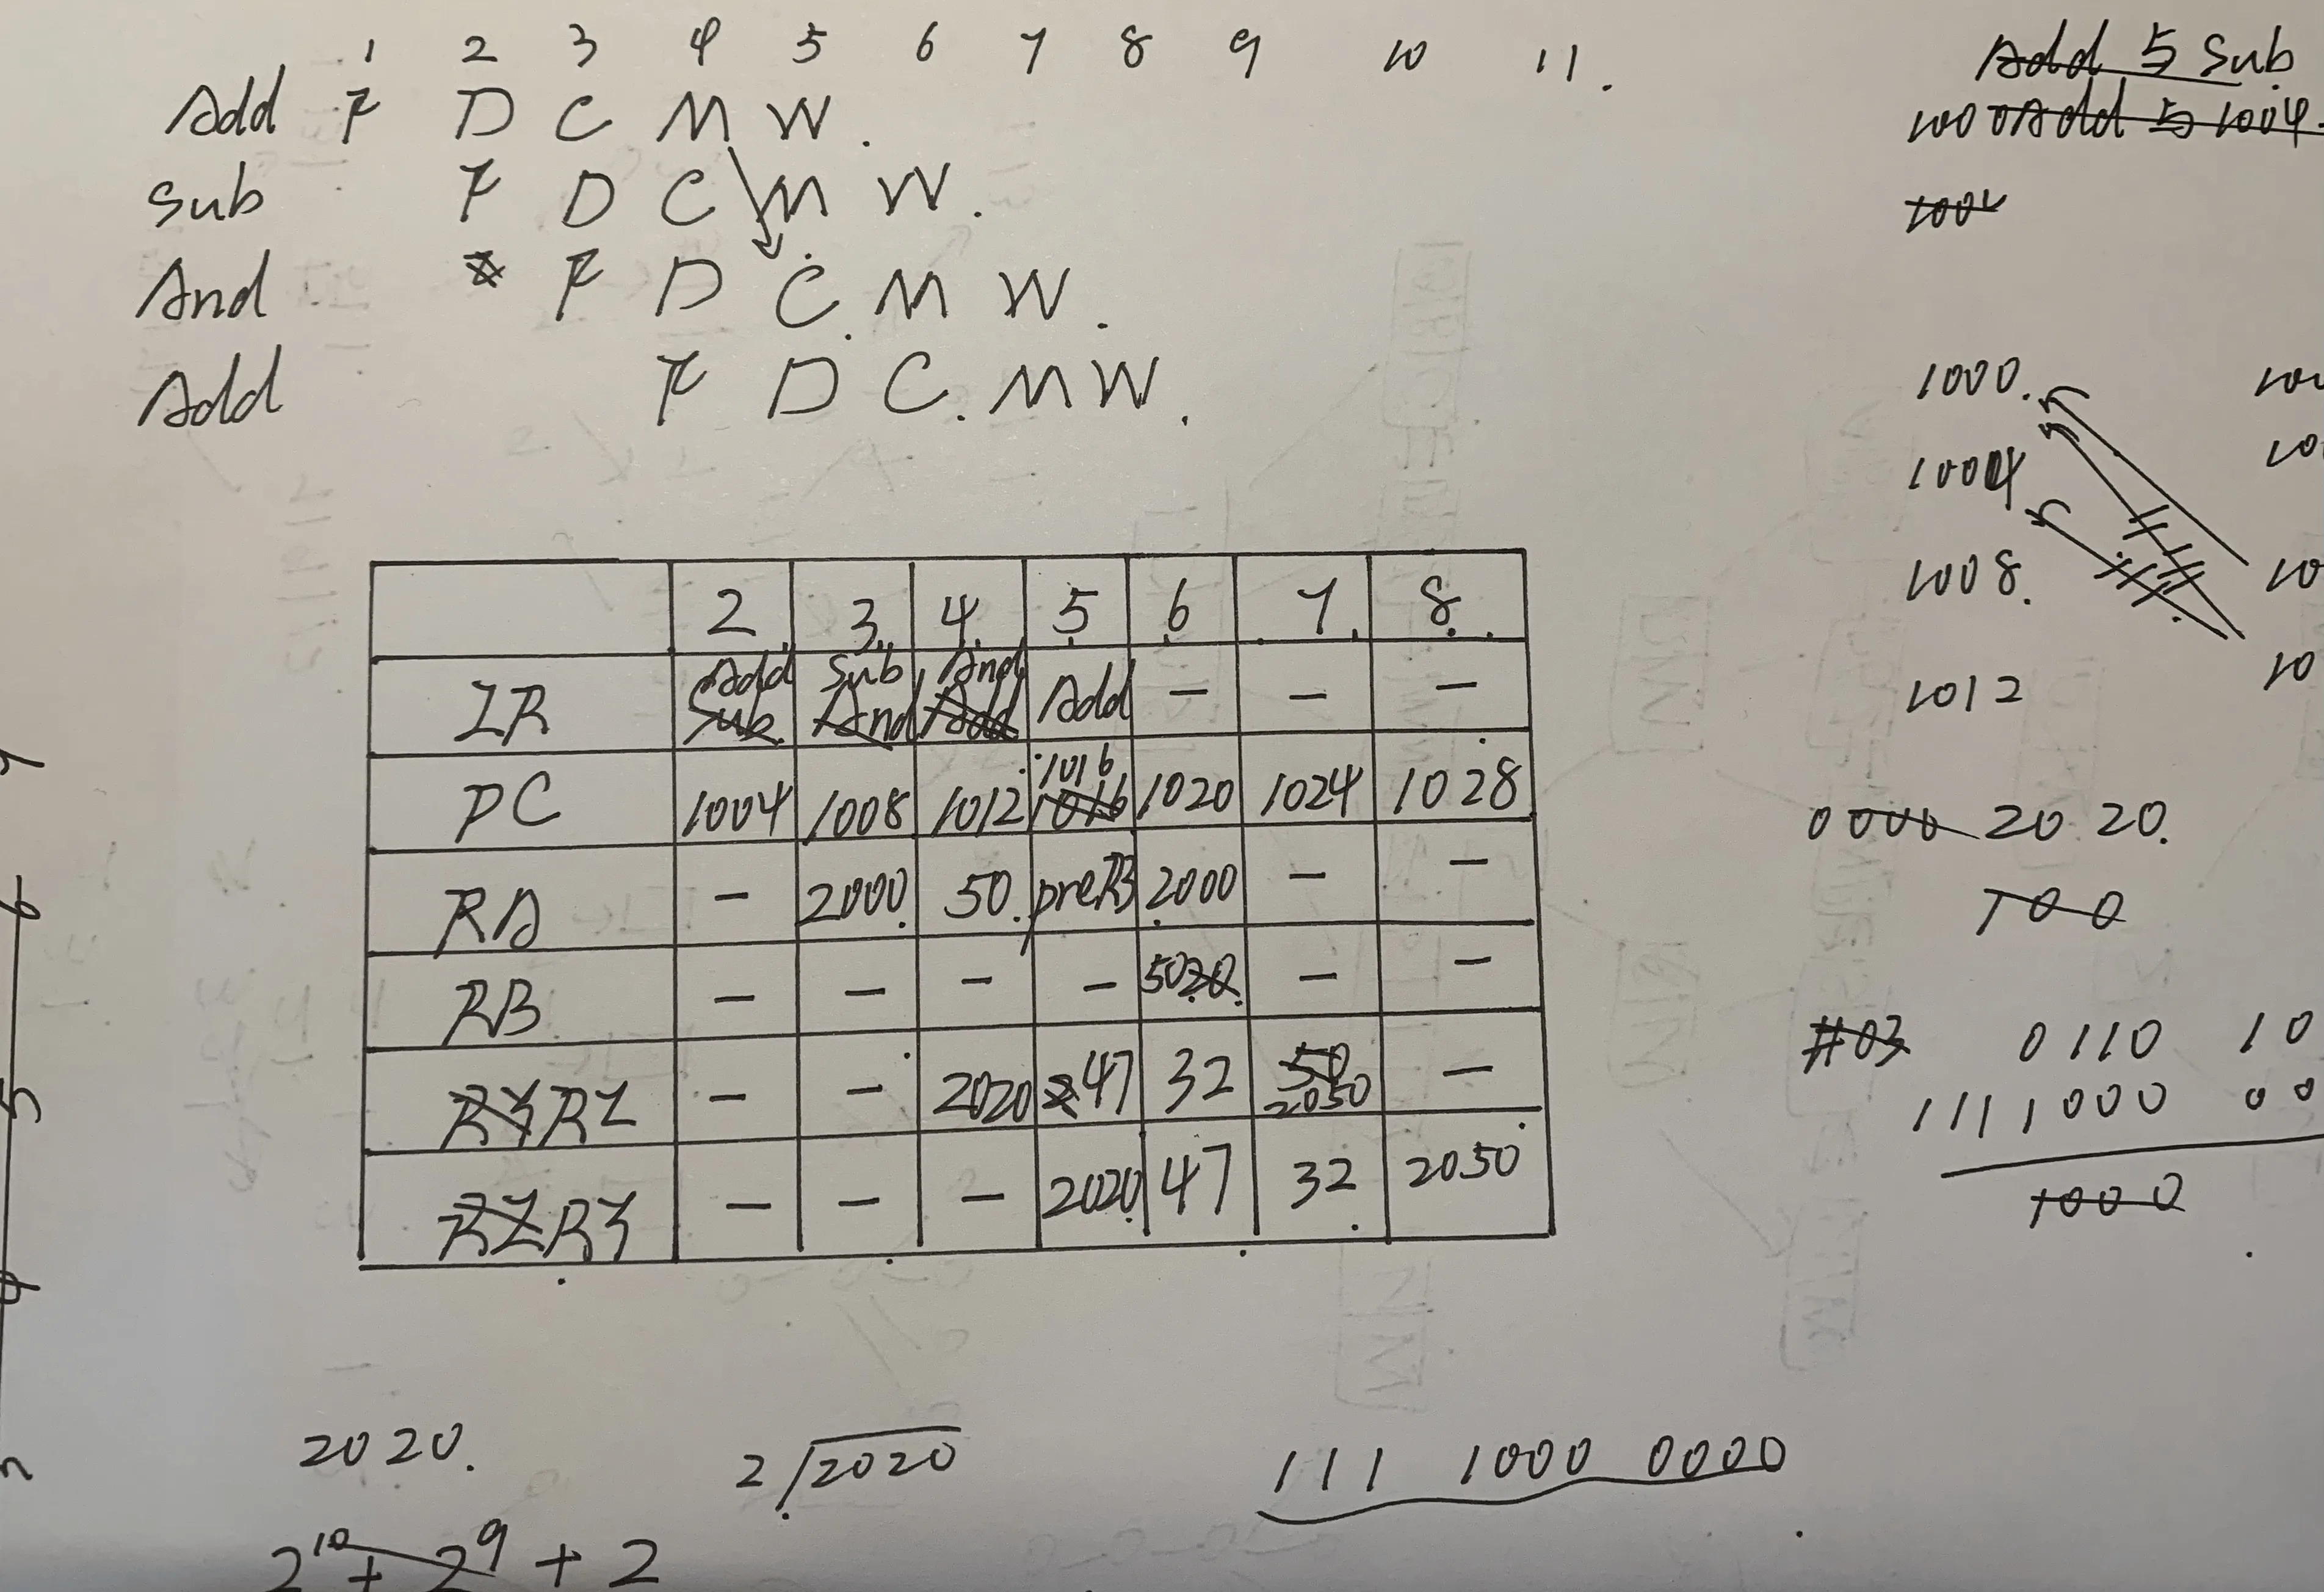 1 2 3 4 5 6 7 8 9 10 11.
Add F D C M W.
Sub F D C M W.
And F D C. M W.
Add F D C. M W.
Add 5 Sub
1000 Add 5 1004.
1000.
1004
1008.
1012
2 3 4 5 6 7 8
IR Add Sub And Add - - -
Sub And Add
PC 1004 1008 1012 1016 1020 1024 1028
1016
RA - 2000. 50. preR3 2000 - -
RB - - - - 50 20. - -
RY RZ - - 2020 47 32 50 -
2050
RZ RY - - - 2020 47 32 2050
0000 20 20.
100
#03 0110 10
1111000 00
1000
2020.
2 2020
111 1000 0000
2¹⁰ + 2⁹ + 2
7
6
5
4